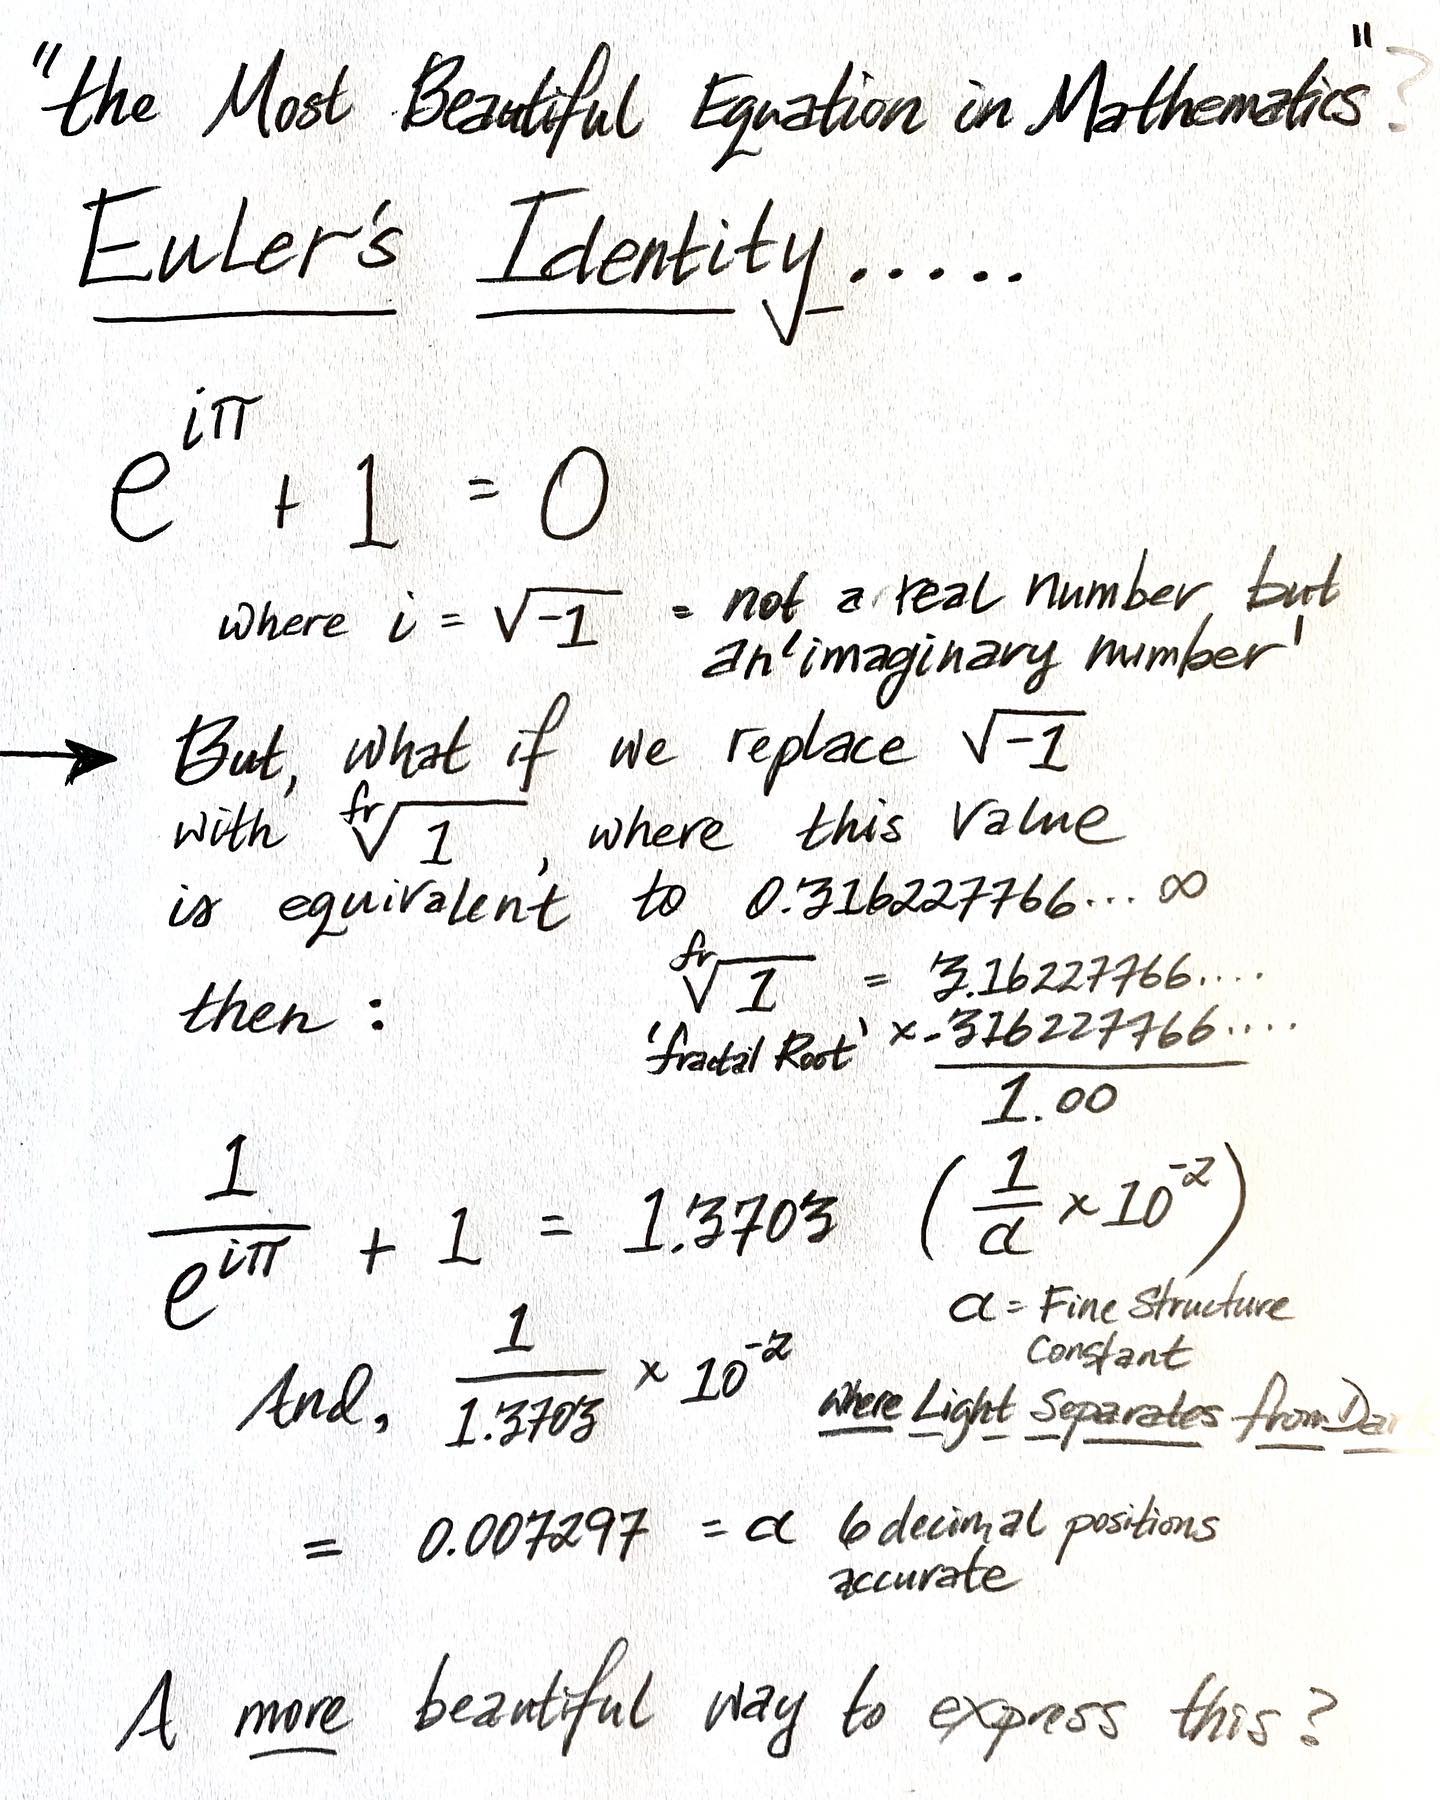 "the Most Beautiful Equation in Mathematics"?
Euler's Identity.....
e^{iπ} + 1 = 0
where i = √-1 = not a real number but
an 'imaginary number'
But, what if we replace √-1
with ^{fr}√1, where this value
is equivalent to 0.316227766... ∞
then: ^{fr}√1 = 3.16227766....
'fractal Root' x .316227766....
1.00
1/e^{iπ} + 1 = 1.3703 (1/α x 10^{-2})
α = Fine Structure
Constant
And, 1/1.3703 x 10^{-2} where Light Separates from Dar
= 0.007297 = α 6 decimal positions
accurate
A more beautiful way to express this?